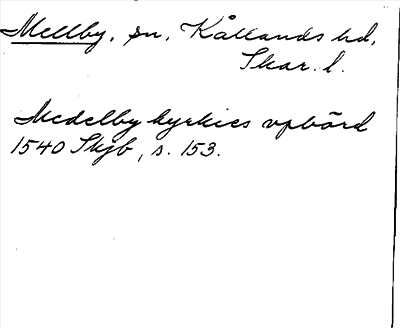 Mellby, sn, Kållands hd,
Skar. l.
Medelby kyrkies vpbörd
1540 Skjb, s. 153.